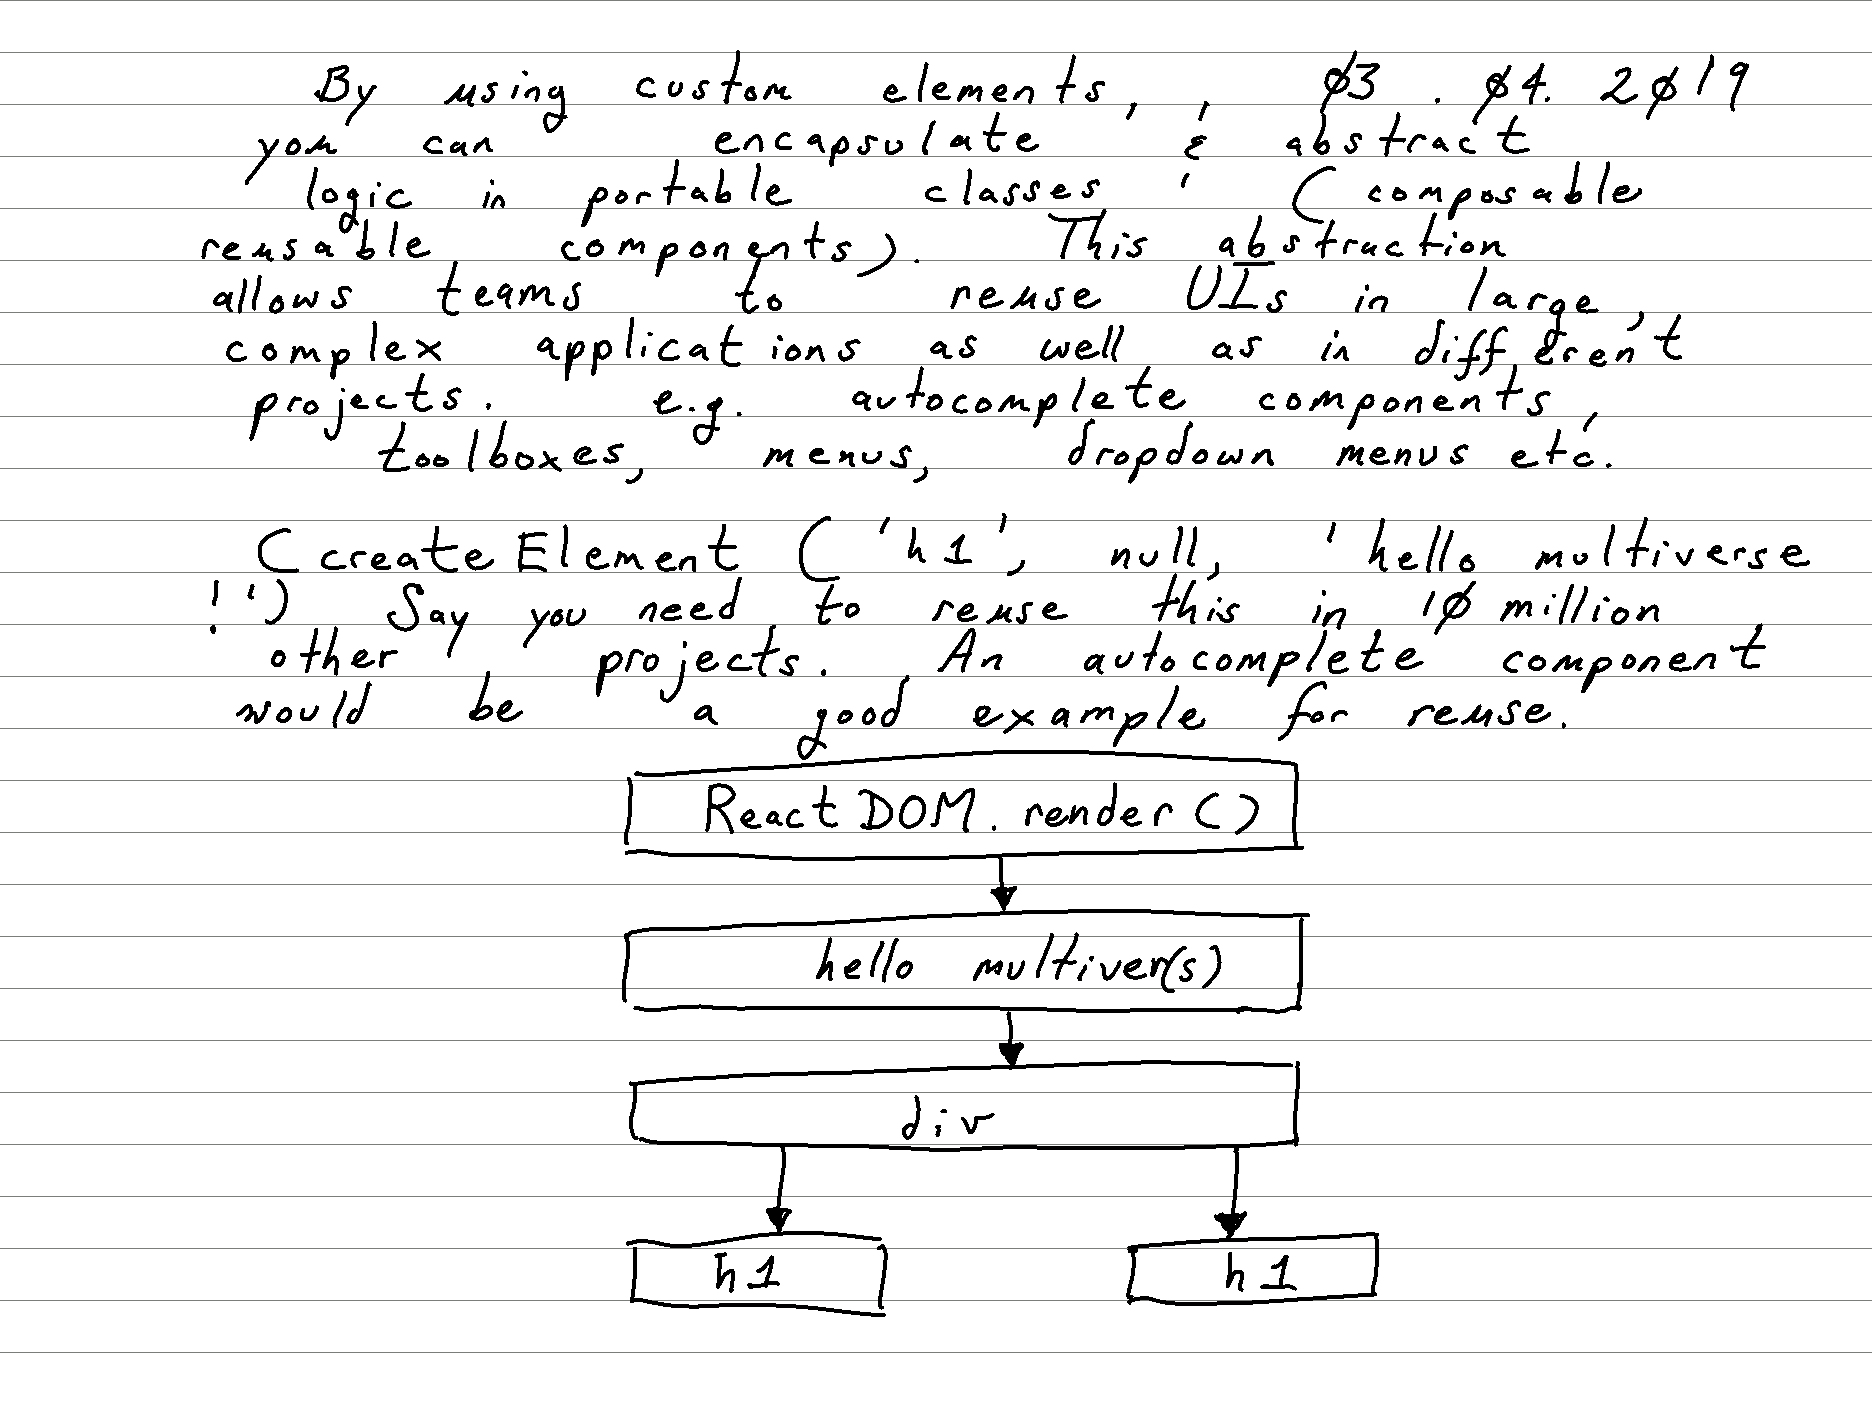 By using custom elements, ' ø3 . ø4. 2ø19
you can encapsulate & abstract
logic in portable classes ' (composable
reusable components). This abstraction
allows teams to reuse UIs in large,
complex applications as well as in different
projects. e.g. autocomplete components,
toolboxes, menus, dropdown menus etc.
(createElement ('h1', null, 'hello multiverse
!') Say you need to reuse this in 1ø million
other projects. An autocomplete component
would be a good example for reuse.
ReactDOM.render()
hello multiver(s)
div
h1 h1